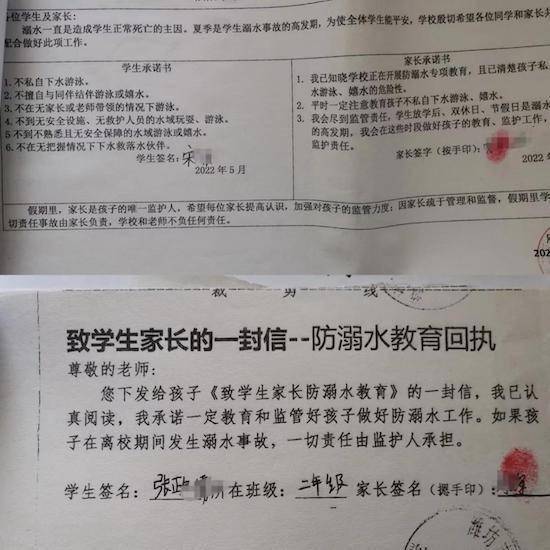 各位学生及家长:
溺水一直是造成学生正常死亡的主因。夏季是学生溺水事故的高发期,为使全体学生能平安,学校殷切希望各位同学和家长共
配合做好此项工作。
学生承诺书
1.不私自下水游泳。
2.不擅自与同伴结伴游泳或嬉水。
3.不在无家长或老师带领的情况下游泳。
4.不到无安全设施、无救护人员的水域玩耍、游泳。
5 不到不熟悉且无安全保障的水域游泳或嬉水。
6.不在无把握情况下下水救落水伙伴。
学生签名:宋
2022 年 5 月
家长承诺书
1. 我已知晓学校正在开展防溺水专项教育,且已清楚孩子私
水游泳、嬉水的危险性。
2. 平时一定注意教育孩子不私自下水游泳、嬉水。
3. 我会尽到监管责任,学生放学后、双休日、节假日是溺水
的高发期,我会在这些时段做好孩子的教育、监护工作,
监护责任。
家长签字(按手印):
假期里,家长是孩子的唯一监护人,希望每位家长提高认识,加强对孩子的监管力度;因家长疏于管理和监督,假期里学
切责任事故由家长负责,学校和老师不负任何责任。
202
裁 剪 线
致学生家长的一封信--防溺水教育回执
尊敬的老师:
您下发给孩子《致学生家长防溺水教育》的一封信,我已认
真阅读,我承诺一定教育和监管好孩子做好防溺水工作。如果孩
子在离校期间发生溺水事故,一切责任由监护人承担。
学生签名:张政 所在班级:二年级 家长签名(摁手印):
潍坊